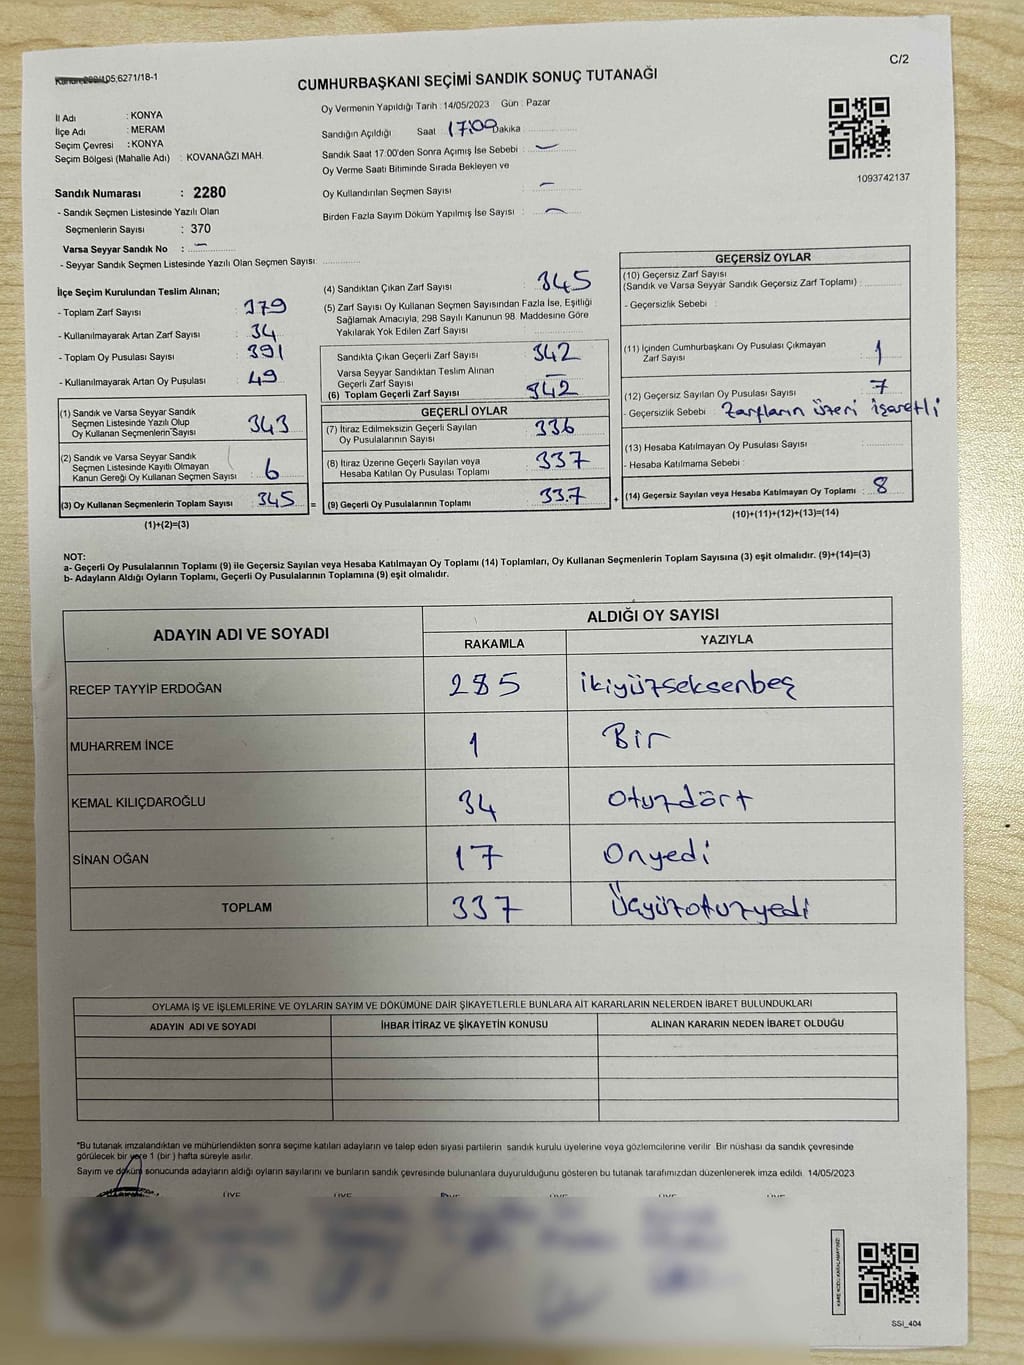 C/2
CUMHURBAŞKANI SEÇİMİ SANDIK SONUÇ TUTANAĞI
İl Adı : KONYA
İlçe Adı : MERAM
Seçim Çevresi : KONYA
Seçim Bölgesi (Mahalle Adı) : KOVANAĞZI MAH.
Oy Vermenin Yapıldığı Tarih : 14/05/2023 Gün : Pazar
Sandığın Açıldığı Saat 17:00 Dakika
Sandık Saat 17:00'den Sonra Açımış İse Sebebi : —
Oy Verme Saati Bitiminde Sırada Bekleyen ve
Oy Kullandırılan Seçmen Sayısı —
Birden Fazla Sayım Döküm Yapılmış İse Sayısı : —
1093742137
Sandık Numarası : 2280
- Sandık Seçmen Listesinde Yazılı Olan
Seçmenlerin Sayısı : 370
Varsa Seyyar Sandık No : —
- Seyyar Sandık Seçmen Listesinde Yazılı Olan Seçmen Sayısı:
İlçe Seçim Kurulundan Teslim Alınan;
- Toplam Zarf Sayısı : 379
- Kullanılmayarak Artan Zarf Sayısı : 34
- Toplam Oy Pusulası Sayısı : 391
- Kullanılmayarak Artan Oy Pusulası : 49
(1) Sandık ve Varsa Seyyar Sandık
Seçmen Listesinde Yazılı Olup
Oy Kullanan Seçmenlerin Sayısı : 343
(2) Sandık ve Varsa Seyyar Sandık
Seçmen Listesinde Kayıtlı Olmayan
Kanun Gereği Oy Kullanan Seçmen Sayısı : 6
(3) Oy Kullanan Seçmenlerin Toplam Sayısı : 345 =
(1)+(2)=(3)
(4) Sandıktan Çıkan Zarf Sayısı : 345
(5) Zarf Sayısı Oy Kullanan Seçmen Sayısından Fazla İse, Eşitliği
Sağlamak Amacıyla; 298 Sayılı Kanunun 98. Maddesine Göre
Yakılarak Yok Edilen Zarf Sayısı
Sandıkta Çıkan Geçerli Zarf Sayısı : 342
Varsa Seyyar Sandıktan Teslim Alınan
Geçerli Zarf Sayısı —
(6) Toplam Geçerli Zarf Sayısı : 342
GEÇERLİ OYLAR
(7) İtiraz Edilmeksizin Geçerli Sayılan
Oy Pusulalarının Sayısı : 336
(8) İtiraz Üzerine Geçerli Sayılan veya
Hesaba Katılan Oy Pusulası Toplamı : 337
(9) Geçerli Oy Pusulalarının Toplamı : 337 +
GEÇERSİZ OYLAR
(10) Geçersiz Zarf Sayısı
(Sandık ve Varsa Seyyar Sandık Geçersiz Zarf Toplamı) :
- Geçersizlik Sebebi :
(11) İçinden Cumhurbaşkanı Oy Pusulası Çıkmayan
Zarf Sayısı : 1
(12) Geçersiz Sayılan Oy Pusulası Sayısı : 7
- Geçersizlik Sebebi : Zarfların üzeri işaretli
(13) Hesaba Katılmayan Oy Pusulası Sayısı
- Hesaba Katılmama Sebebi :
(14) Geçersiz Sayılan veya Hesaba Katılmayan Oy Toplamı : 8
(10)+(11)+(12)+(13)=(14)
NOT:
a- Geçerli Oy Pusulalarının Toplamı (9) ile Geçersiz Sayılan veya Hesaba Katılmayan Oy Toplamı (14) Toplamları, Oy Kullanan Seçmenlerin Toplam Sayısına (3) eşit olmalıdır. (9)+(14)=(3)
b- Adayların Aldığı Oyların Toplamı, Geçerli Oy Pusulalarının Toplamına (9) eşit olmalıdır.
ADAYIN ADI VE SOYADI ALDIĞI OY SAYISI
RAKAMLA YAZIYLA
RECEP TAYYİP ERDOĞAN 285 ikiyüzseksenbeş
MUHARREM İNCE 1 Bir
KEMAL KILIÇDAROĞLU 34 Otuzdört
SİNAN OĞAN 17 Onyedi
TOPLAM 337 Üçyüzotuzyedi
OYLAMA İŞ VE İŞLEMLERİNE VE OYLARIN SAYIM VE DÖKÜMÜNE DAİR ŞİKAYETLERLE BUNLARA AİT KARARLARIN NELERDEN İBARET BULUNDUKLARI
ADAYIN ADI VE SOYADI İHBAR İTİRAZ VE ŞİKAYETİN KONUSU ALINAN KARARIN NEDEN İBARET OLDUĞU
*Bu tutanak imzalandıktan ve mühürlendikten sonra seçime katılan adayların ve talep eden siyasi partilerin sandık kurulu üyelerine veya gözlemcilerine verilir. Bir nüshası da sandık çevresinde
görülecek bir yere 1 (bir ) hafta süreyle asılır.
Sayım ve döküm sonucunda adayların aldığı oyların sayılarını ve bunların sandık çevresinde bulunanlara duyurulduğunu gösteren bu tutanak tarafımızdan düzenlenerek imza edildi. 14/05/2023
SSİ_404